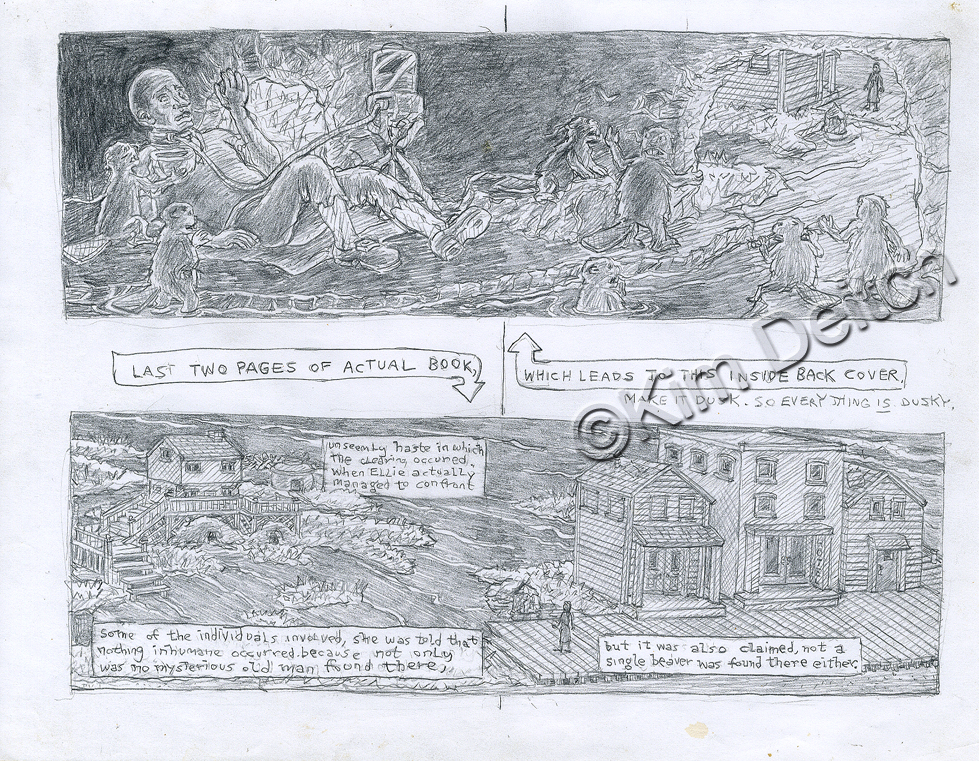 LAST TWO PAGES OF ACTUAL BOOK,
WHICH LEADS TO THIS INSIDE BACK COVER.
MAKE IT DUSK. SO EVERY THING IS DUSKY.
©Kim Deitch
unseemly haste in which
the clearing occurred.
When ELLie actually
managed to confront
some of the individuals involved, she was told that
nothing inhumane occurred. because not only
was no mysterious old man found there,
but it was also claimed, not a
single beaver was found there either.